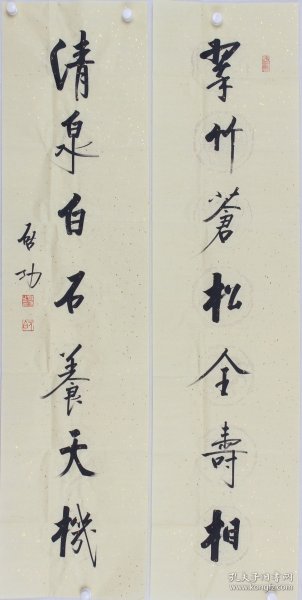 翠竹蒼松全壽相
清泉白石養天機
啟功
孔夫子旧书网